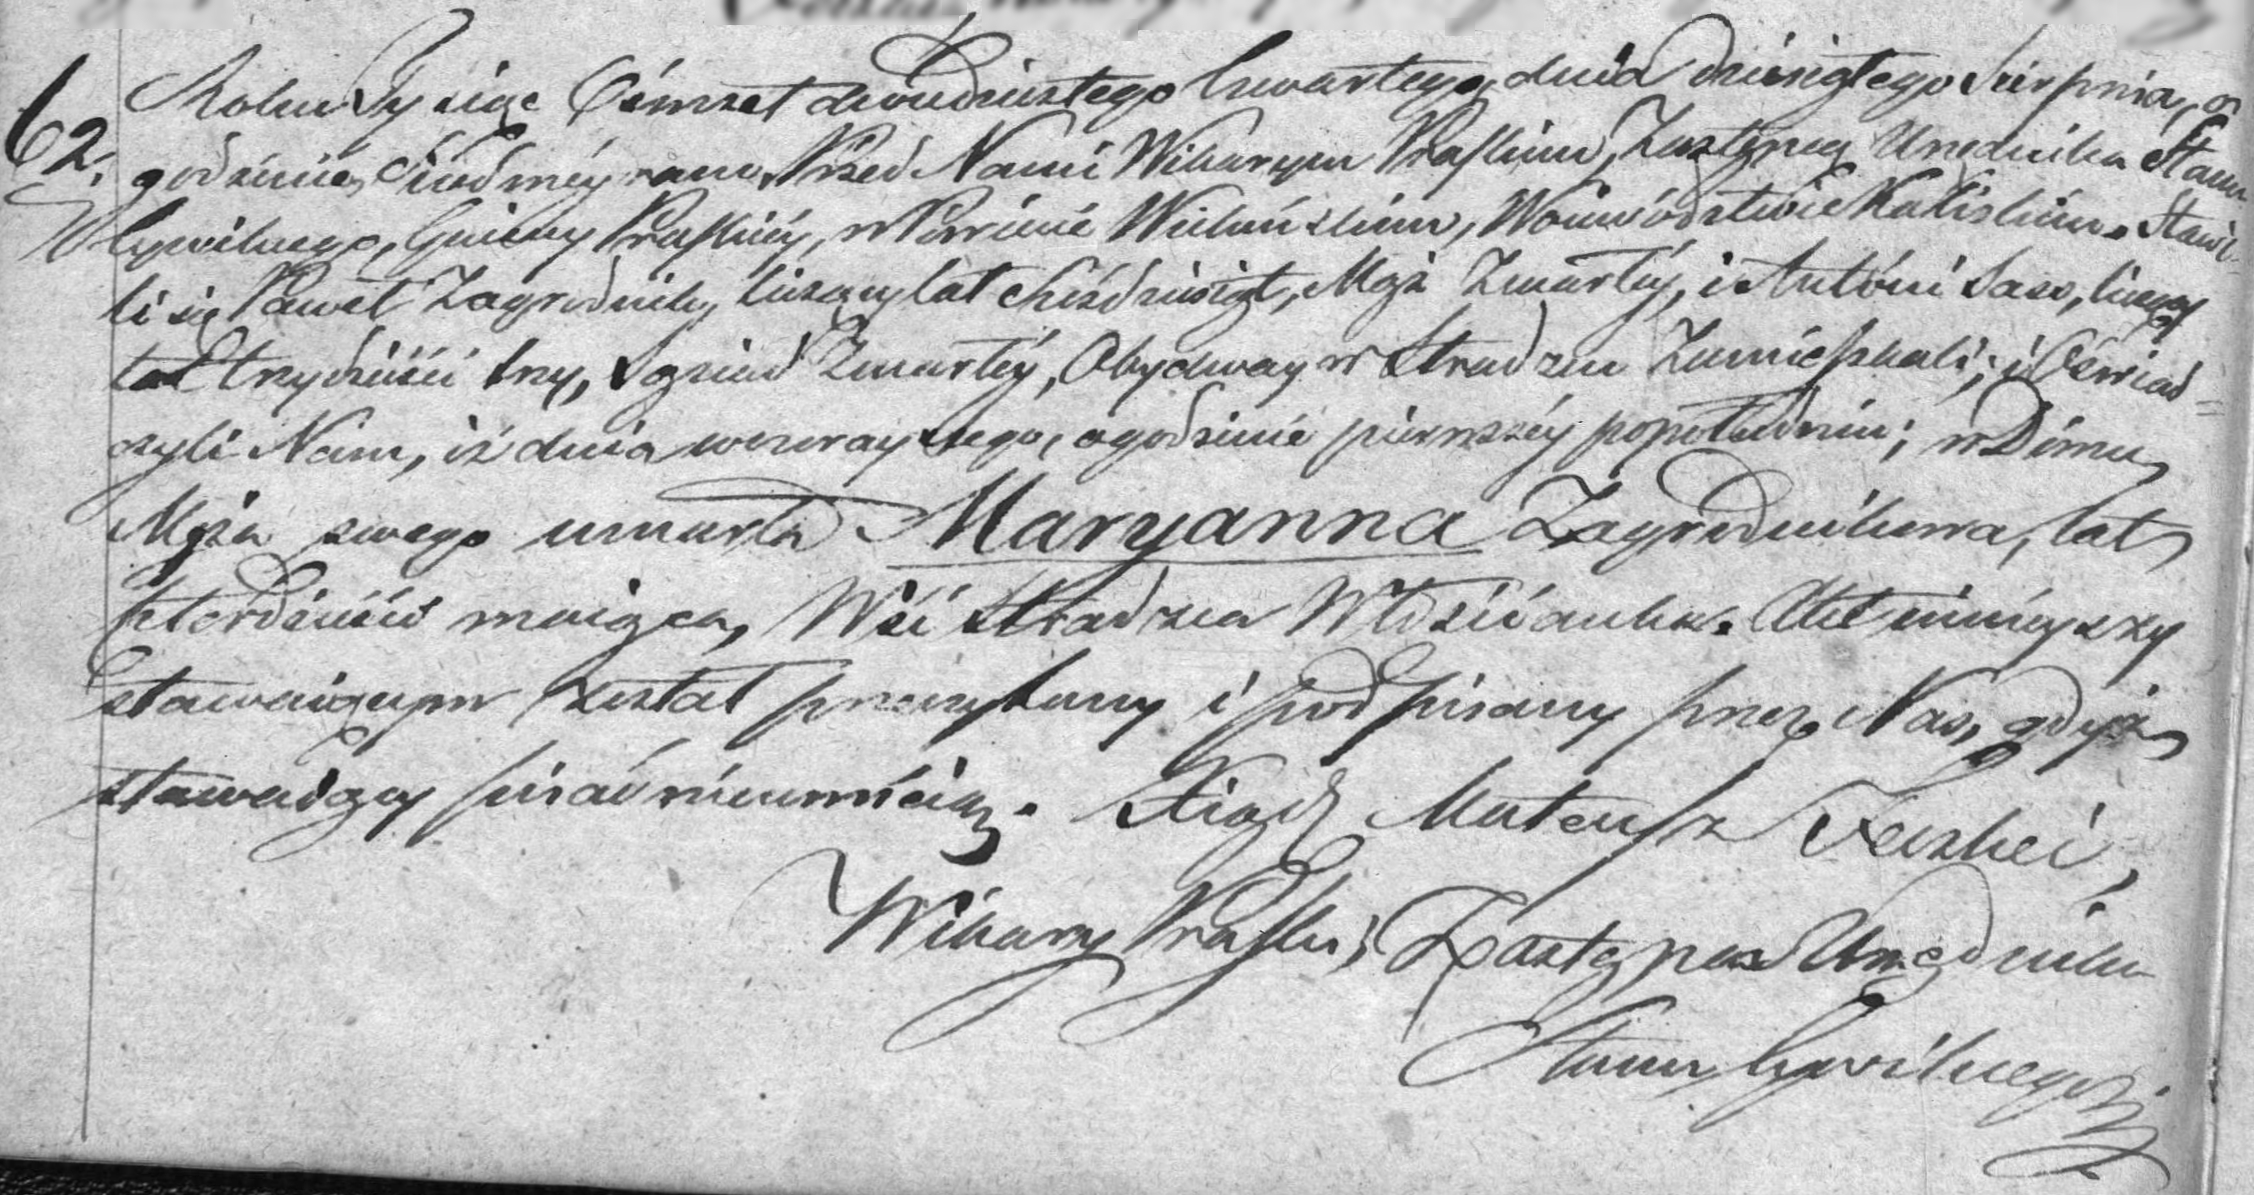 62. Roku Tysiąc Ósmset dwudziestego Czwartego, dnia dziesiątego Sierpnia, o
godzinie Siódméy rano. Przed Nami Wikarym Praskim, Zastępcą Urzędnika Stanu
Cywilnego, Gminy Praskiéy, w Powiecie Wieluńskim, Woiewództwie Kaliskim. Stawi-
li się Paweł Zagrodnik, liczący lat sześdziesiąt, Mąż Zmarłéy, i Antóni Sass, liczący
lat trzydzieści trzy, Sąsiad Zmarłéy, Obydway w Stradzu Zamieszkali; i Oświad=
czyli Nam, iż dnia wczorayszego, o godzinie pierwszéy popołudniu; w Domu
Męża swego umarła Maryanna Zagrodnikowa, lat
czterdzieści maiąca, Wsi Stradzca Włościanka. Akt ninieyszy
stawaiącym został przeczytany i podpisany przez Nas, gdyż
stawaiący pisać nieumieią. Xiądz Mateusz
Wikary Praski, Zastępca Urzędnika
Stanu Cywilnego